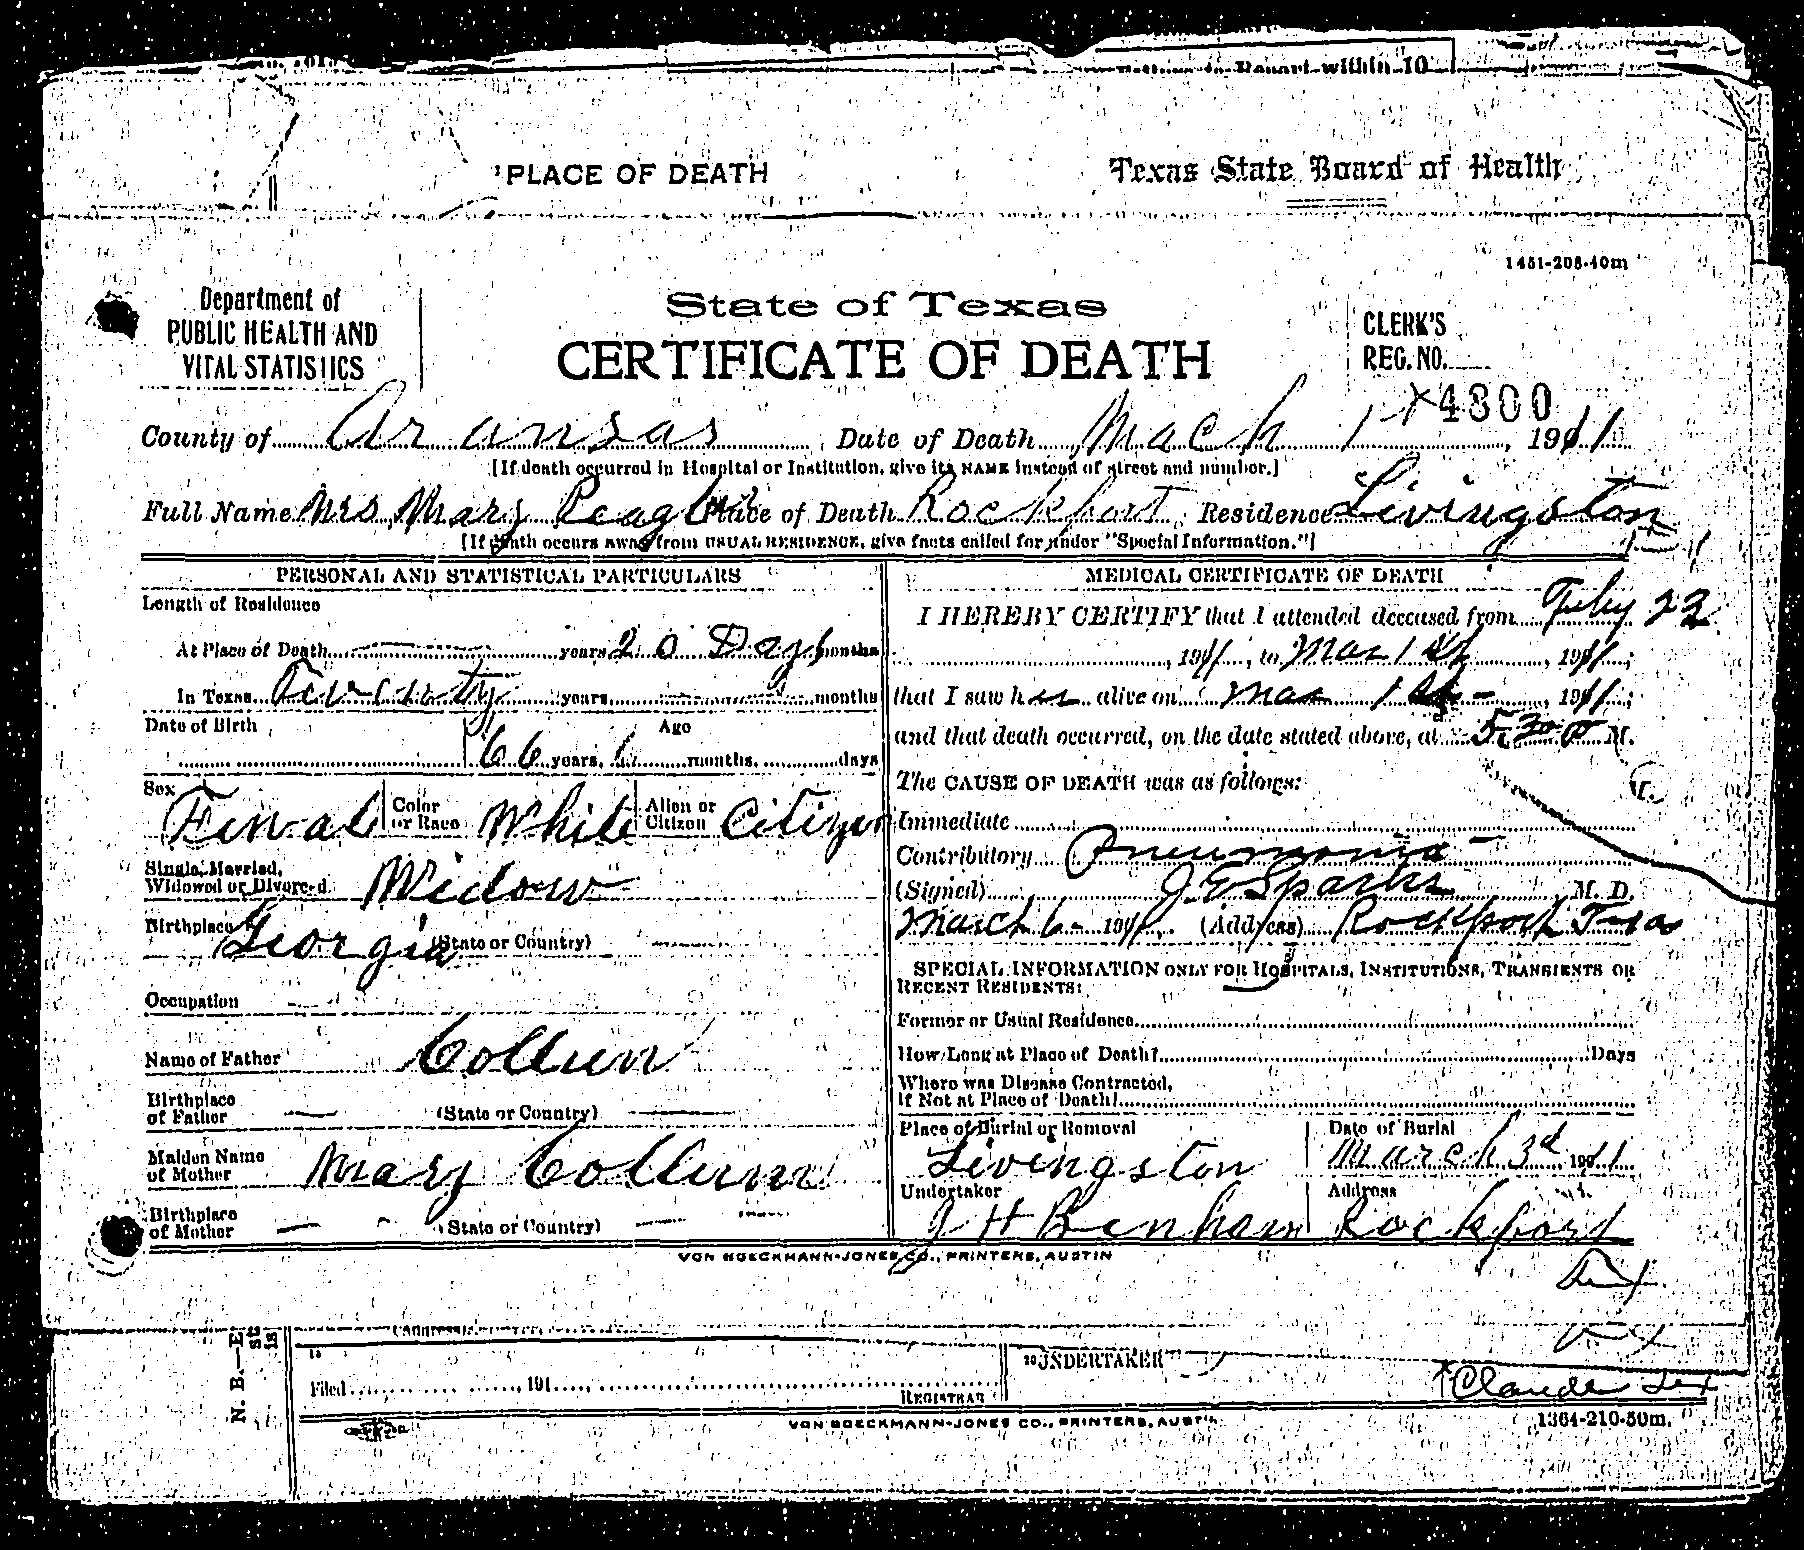 Report within 10
PLACE OF DEATH
Texas State Board of Health
1451-208-40m
Department of
PUBLIC HEALTH AND
VITAL STATISTICS
State of Texas
CERTIFICATE OF DEATH
CLERK'S
REG. NO.
4300
County of Aransas Date of Death Mach 1 1911
[If death occurred in Hospital or Institution, give its NAME instead of street and number.]
Full Name Mrs Mary Place of Death Rockport Residence Livingston
[If death occurs away from USUAL RESIDENCE, give facts called for under "Special Information."]
PERSONAL AND STATISTICAL PARTICULARS
Length of Residence
At Place of Death years 20 Days months
In Texas Twenty years months
Date of Birth
Age
66 years, 6 months, days
Sex Femal Color or Race White Alien or Citizen Citizen
Single, Married,
Widowed or Divorced Widow
Birthplace Georgia (State or Country)
Occupation
Name of Father Collum
Birthplace
of Father (State or Country)
Maiden Name
of Mother Mary Collum
Birthplace
of Mother (State or Country)
MEDICAL CERTIFICATE OF DEATH
I HEREBY CERTIFY that I attended deceased from Feby 23
1911, to Mar 1st, 1911;
that I saw her alive on Mar 1st - , 1911;
and that death occurred, on the date stated above, at 5,30 P M.
The CAUSE OF DEATH was as follows:
Immediate
Contributory Pneumonia -
(Signed) J. E Sparks M. D.
March 6 - 1911. (Address) Rockport Texas
SPECIAL INFORMATION ONLY FOR HOSPITALS, INSTITUTIONS, TRANSIENTS OR
RECENT RESIDENTS:
Former or Usual Residence
How Long at Place of Death? Days
Where was Disease Contracted,
If Not at Place of Death?
Place of Burial or Removal
Livingston
Date of Burial
March 3d, 1911
Undertaker
J H Benham
Address
Rockport
Tex
VON BOECKMANN-JONES CO., PRINTERS, AUSTIN
N. B.—E
st
is
15
Filed , 191
REGISTRAR
20 UNDERTAKER
Claude Tex
VON BOECKMANN-JONES CO., PRINTERS, AUSTIN
1364-210-50m.